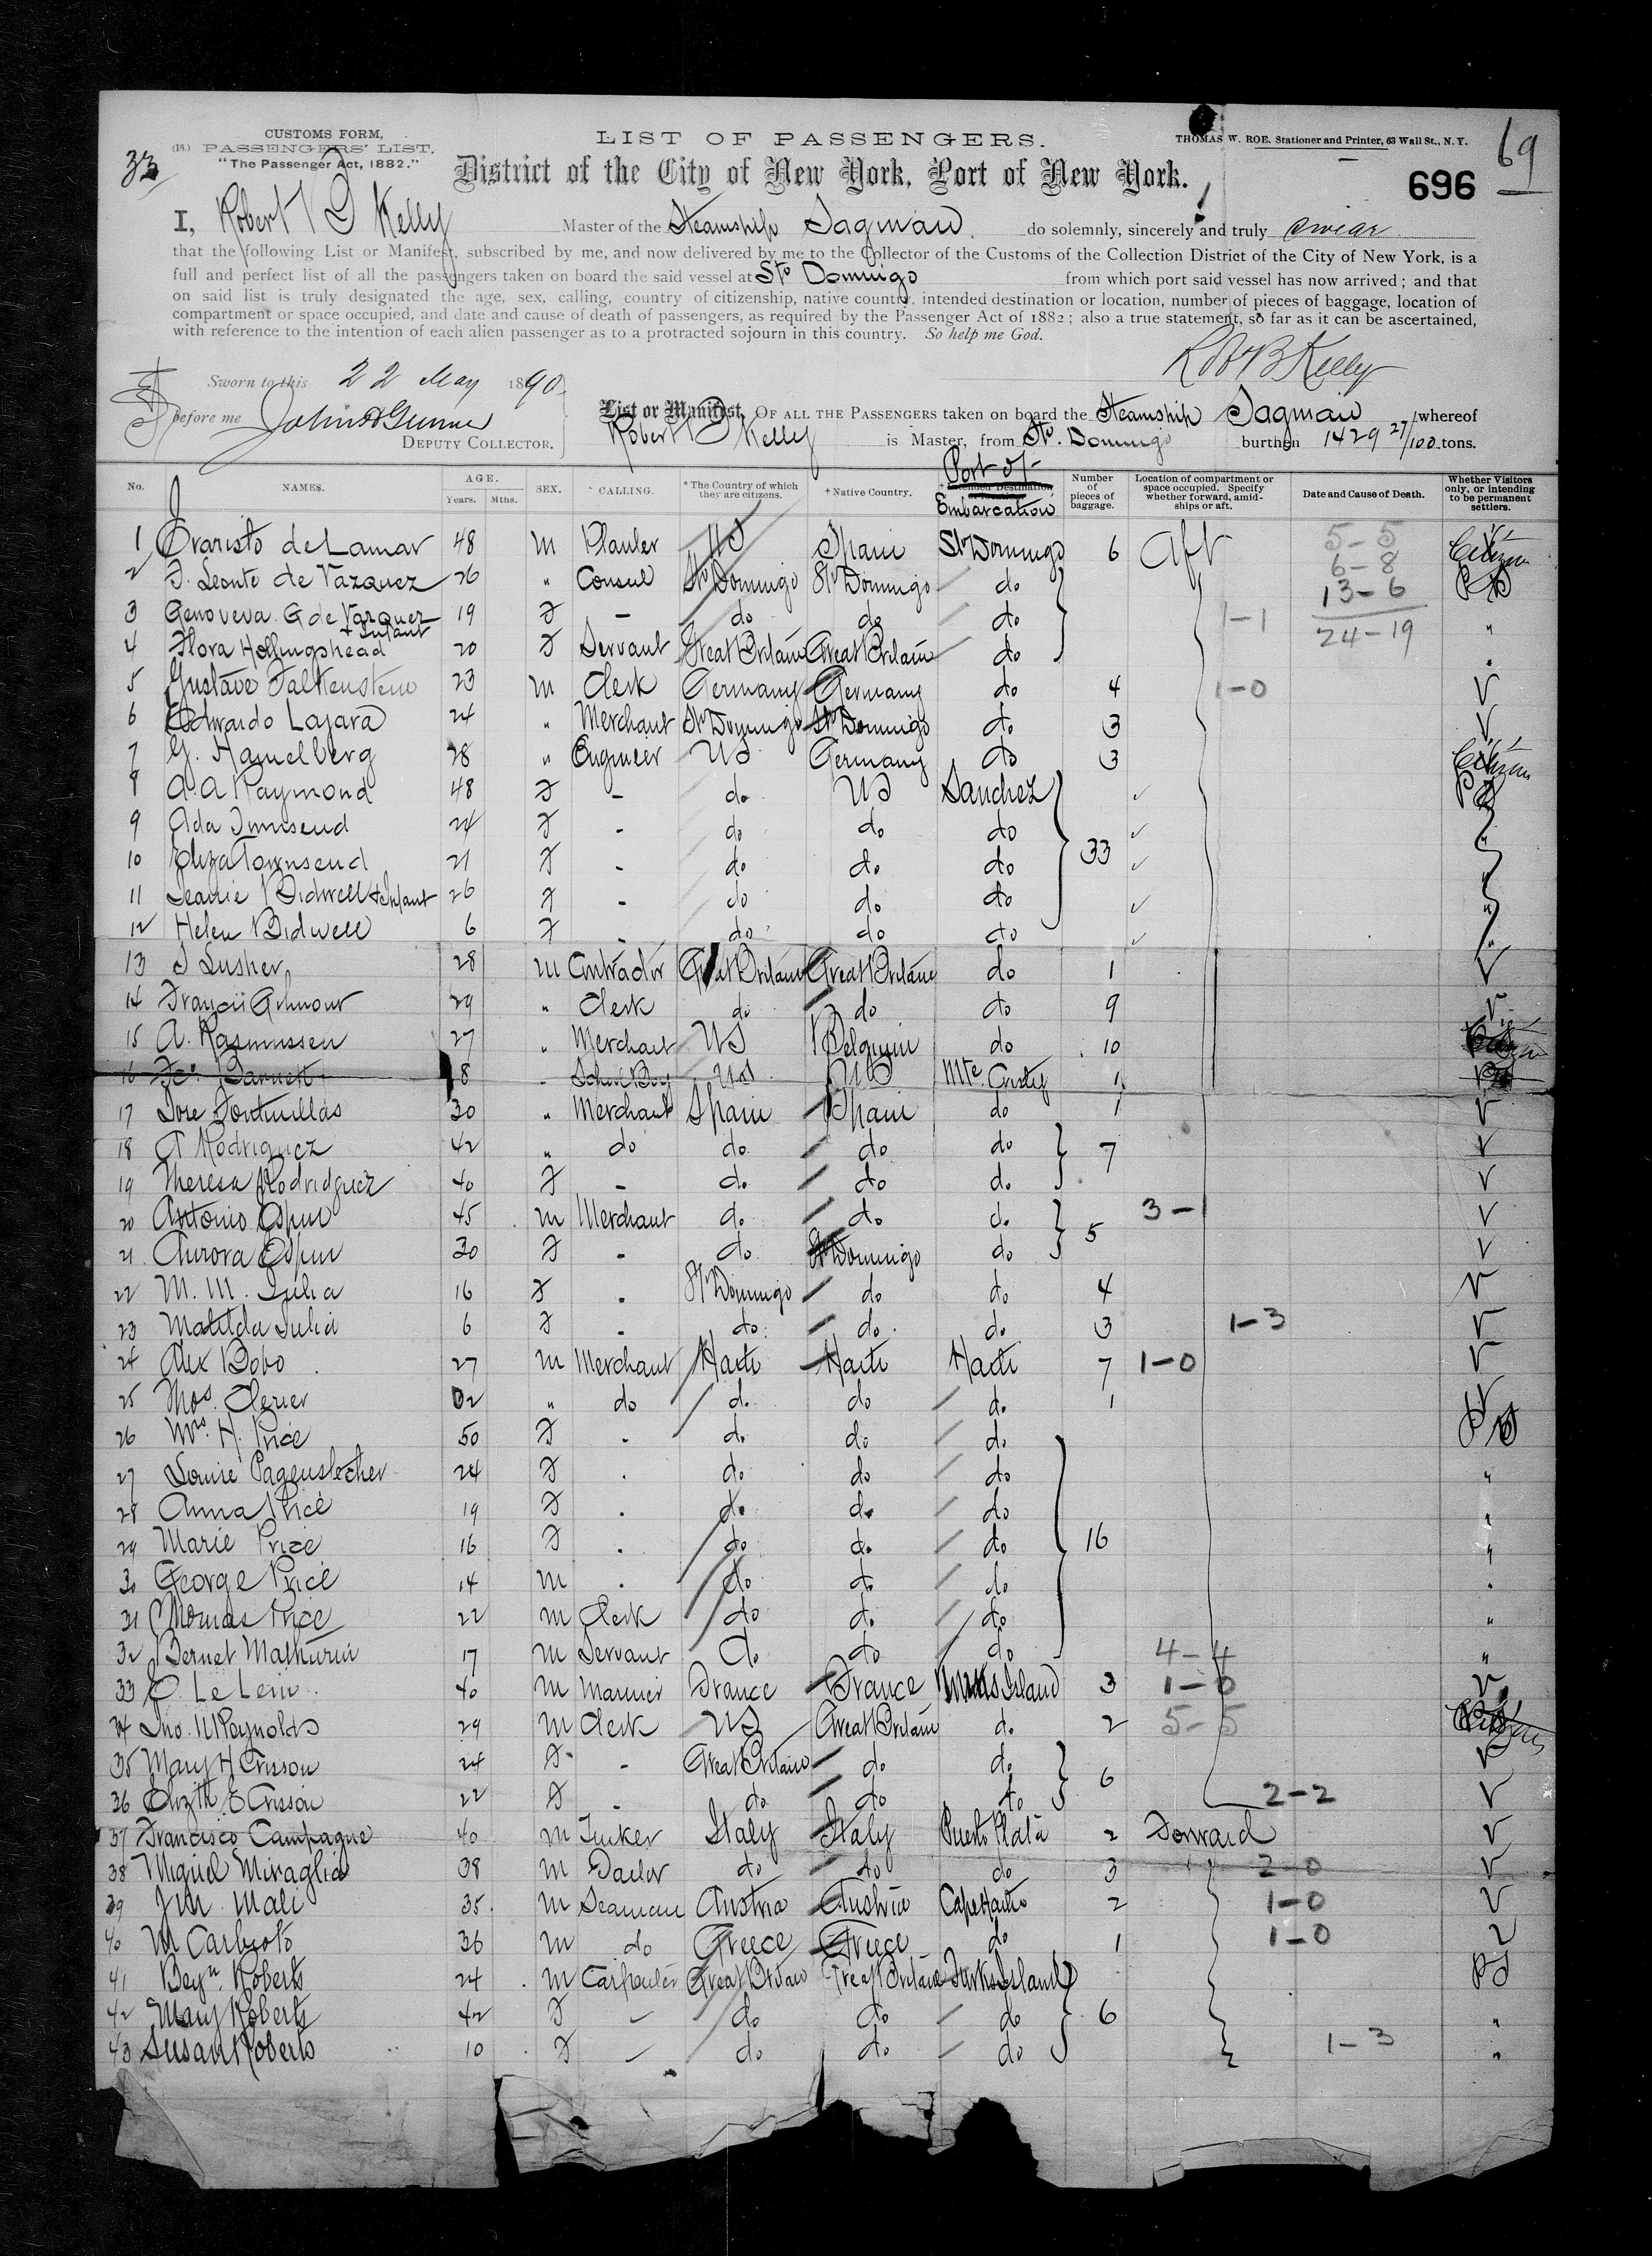 CUSTOMS FORM,
(18.) PASSENGERS' LIST.
"The Passenger Act, 1882."
33
LIST OF PASSENGERS.
THOMAS W. ROE. Stationer and Printer, 63 Wall St., N. Y.
69
District of the City of New York, Port of New York.
696
I, Robert B Kelly Master of the Steamship Saginaw. do solemnly, sincerely and truly swear
that the following List or Manifest, subscribed by me, and now delivered by me to the Collector of the Customs of the Collection District of the City of New York, is a
full and perfect list of all the passengers taken on board the said vessel at Sto Domingo from which port said vessel has now arrived; and that
on said list is truly designated the age, sex, calling, country of citizenship, native country, intended destination or location, number of pieces of baggage, location of
compartment or space occupied, and date and cause of death of passengers, as required by the Passenger Act of 1882; also a true statement, so far as it can be ascertained,
with reference to the intention of each alien passenger as to a protracted sojourn in this country. So help me God.
Robt B Kelly
Sworn to this 22 May 1890
before me John Gunner
DEPUTY COLLECTOR.
List or Manifest, OF ALL THE PASSENGERS taken on board the Steamship Saginaw whereof
Robert B Kelly is Master, from Sto. Domingo burthen 1429 27/100 tons.
No. NAMES. AGE. Years. Mths. SEX. CALLING. *The Country of which they are citizens. †Native Country. Intended Destination Port of Embarcation Number of pieces of baggage. Location of compartment or space occupied. Specify whether forward, amidships or aft. Date and Cause of Death. Whether Visitors only, or intending to be permanent settlers.
1 Evaristo de Lamar 48 m Planter US Spain Sto Domingo 6 Aft 5-5 Citizen
6-8
2 F. Leonte de Vazquez 26 " Consul Sto Domingo Sto Domingo do 13-6 PS
3 Genoveva G de Vazquez 19 F - do do do 1-1 24-19 "
+ Infant
4 Flora Hollingshead 20 F Servant Great Britain Great Britain do "
5 Gustave Falkenstein 23 m Clerk Germany Germany do 4 1-0 V
6 Edwardo Lazara 24 " Merchant Sto Domingo Sto Domingo do 3 V
7 G. Hamelberg 28 " Engineer US Germany do 3 Citizen
8 A. A Raymond 48 F - do US Sanchez PS
9 Ada Townsend 24 F - do do do "
10 Eliza Townsend 21 F - do do do 33 "
11 Jeanie Bidwell + Infant 26 F - do do do "
12 Helen Bidwell 6 F - do do do "
13 J Lusher 28 m Contractor Great Britain Great Britain do 1 V
14 Francis Gilmour 29 " Clerk do do do 9 V
15 A. Rasmussen 27 " Merchant US Belgium do 10 Citizen
16 Barnett 8 " School Boy US US Mte Cristy 1
17 Jose Fontanillas 30 " Merchant Spain Spain do 1 V
18 A Rodriguez 42 " do do do do 7 V
19 Theresa Rodridguez 40 F - do do do V
20 Antonio Espin 45 m Merchant do do do 5 3-1 V
21 Aurora Espin 30 F - do Sto Domingo do V
22 M. M. Julia 16 F - Sto Domingo do do 4 V
23 Matilda Julia 6 F - do do do 3 1-3 V
24 Alex Bobo 27 m Merchant Haiti Haiti Haiti 7 1-0 V
25 Thos. Clerier " do do do do 1 V
26 Mrs. H. Price 50 F - do do do PS
27 Louise Pagenstecher 24 F - do do do "
28 Anna Price 19 F - do do do "
29 Marie Price 16 F - do do do 16 "
30 George Price 14 m - do do do "
31 Thomas Price 22 m Clerk do do do "
32 Bernet Mathurin 17 m Servant do do do 4-4 "
33 Le Lein 40 m Mariner France France Turks Island 3 1-0 V
34 Jno. W Reynolds 29 m Clerk US Great Britain do 2 5-5 Citizen
35 Mary H Crisson 24 F - Great Britain do do 6 V
36 Elizth E Crisson 22 F - do do do 2-2 V
37 Francisco Campagne 40 m Tinker Italy Italy Puerto Plata 2 Forward V
38 Miguel Miraglia 38 m Tailor do do do 3 2-0 V
39 J M. Mali 35 m Seaman Austria Austria Cape Haitie 2 1-0 V
40 M Carboto 36 m do Greece Greece do 1 1-0 V
41 Benjn. Roberts 24 m Carpenter Great Britain Great Britain Turks Island PS
42 Mary Roberts 42 F - do do do 6 "
43 Susan Roberts 10 F - do do do 1-3 "